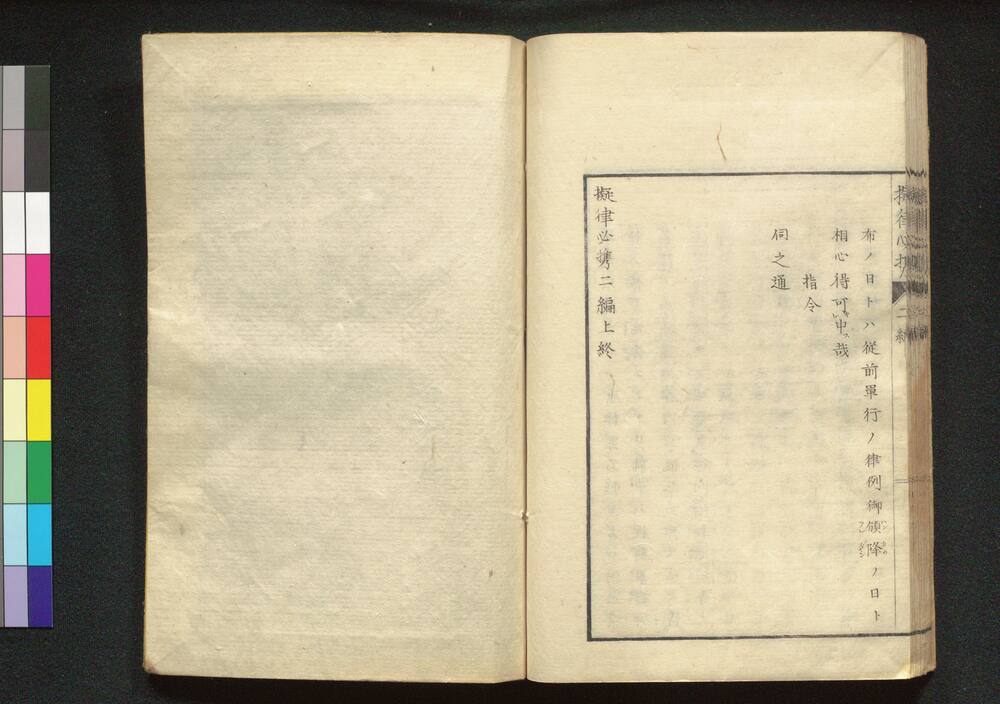 布ノ日トハ従前單行ノ律例御頒降ノ日ト
相心得可申哉
指令
伺之通
擬律必携二編上終